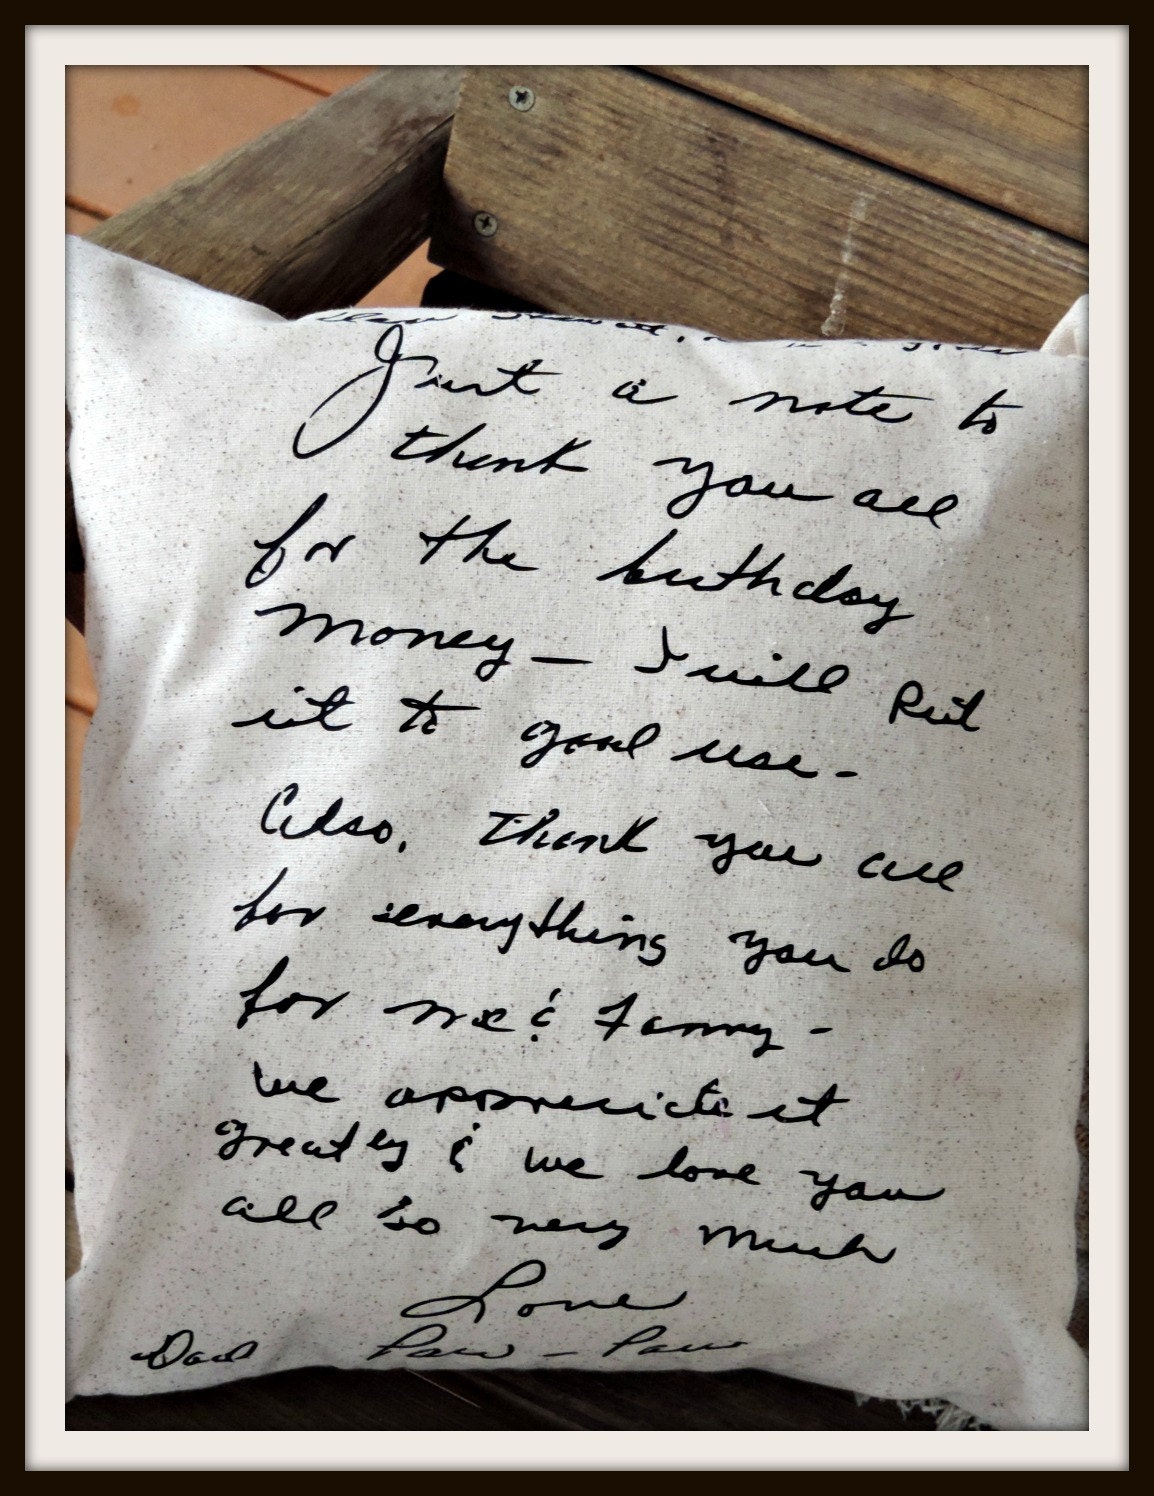 Just a note to
thank you all
for the birthday
money — I will Put
it to good use -
Also, thank you all
for everything you do
for me & Fanny -
we appreciate it
greatly & we love you
all so very much
Love
Dad Paw - Paw